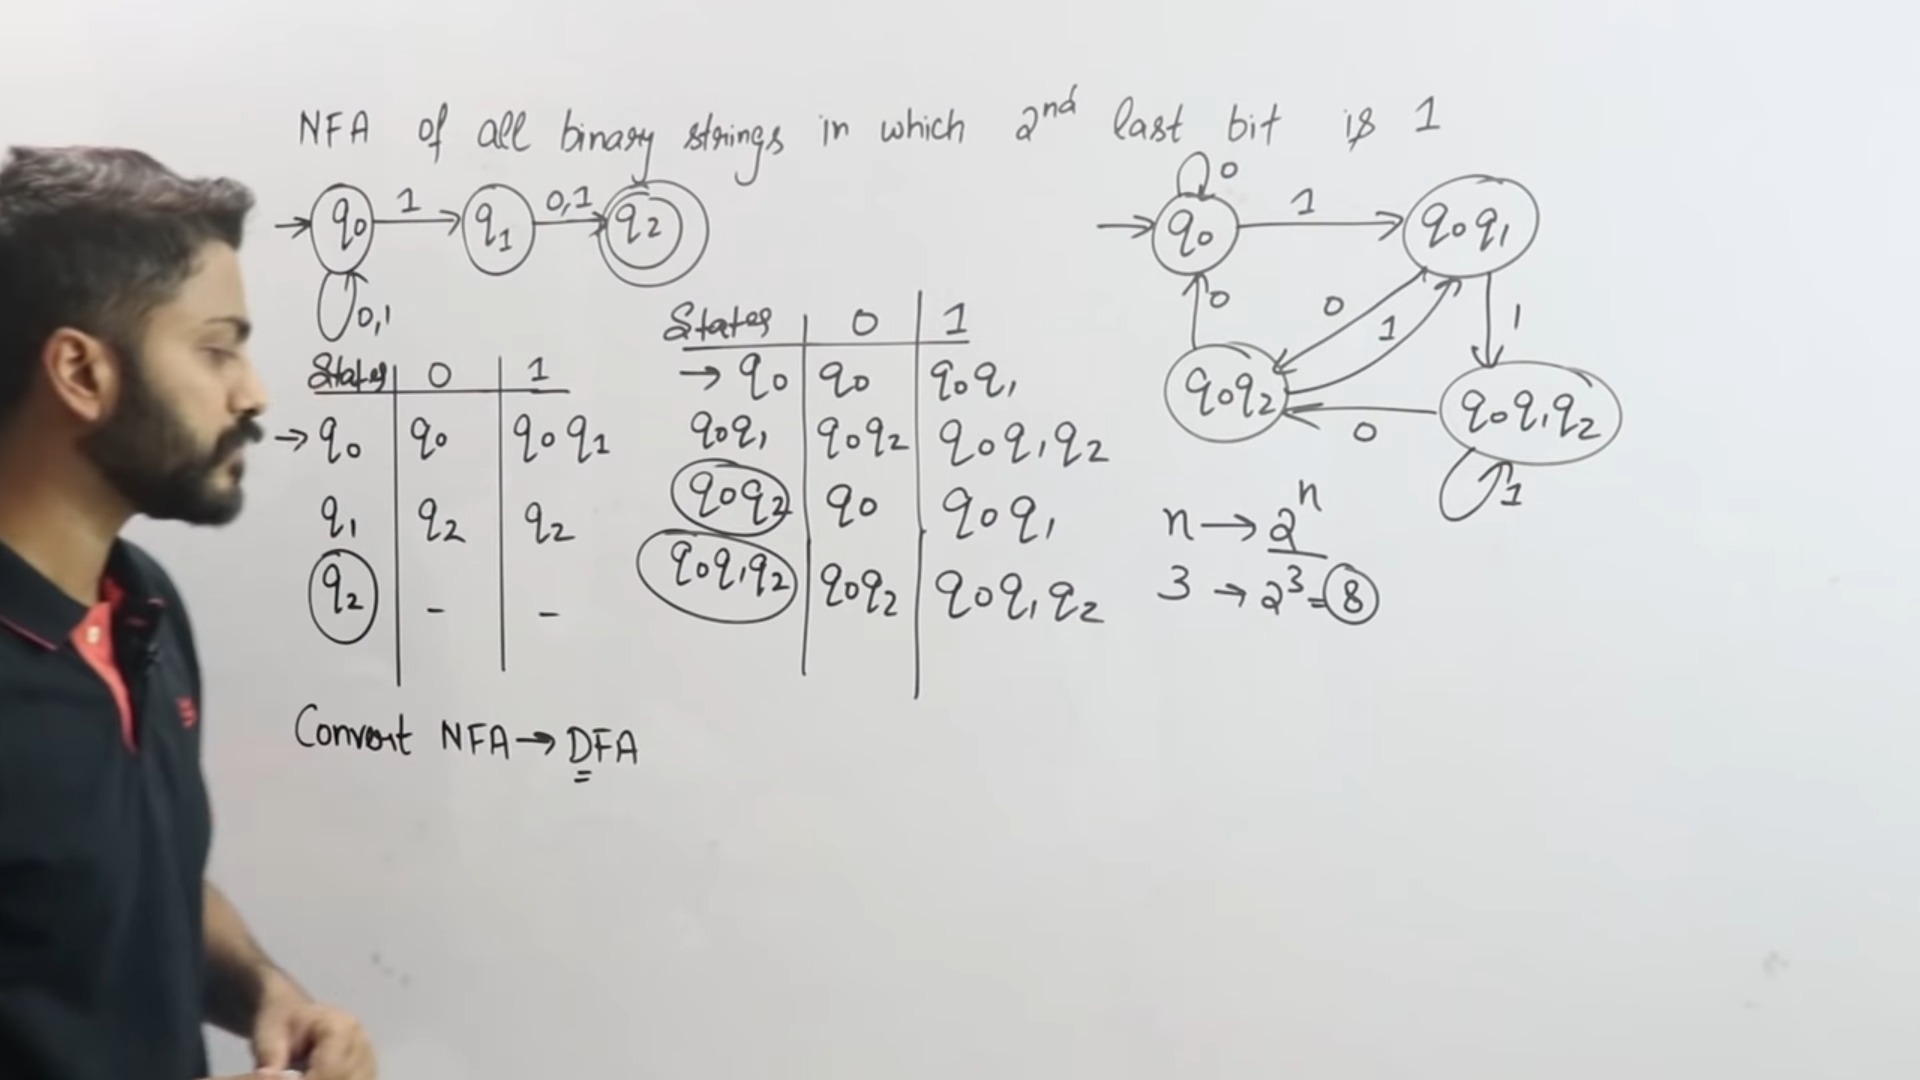 NFA of all binary strings in which 2nd last bit is 1
q0 1 q1 0,1 q2
0,1
States 0 1
→ q0 q0 q0q1
q1 q2 q2
q2 - -
Convert NFA → DFA
States 0 1
→ q0 q0 q0q1
q0q1 q0q2 q0q1q2
q0q2 q0 q0q1
q0q1q2 q0q2 q0q1q2
0
q0 1 q0q1
0 0 1 1
q0q2 0 q0q1q2
1
n → 2^n
3 → 2^3 = 8